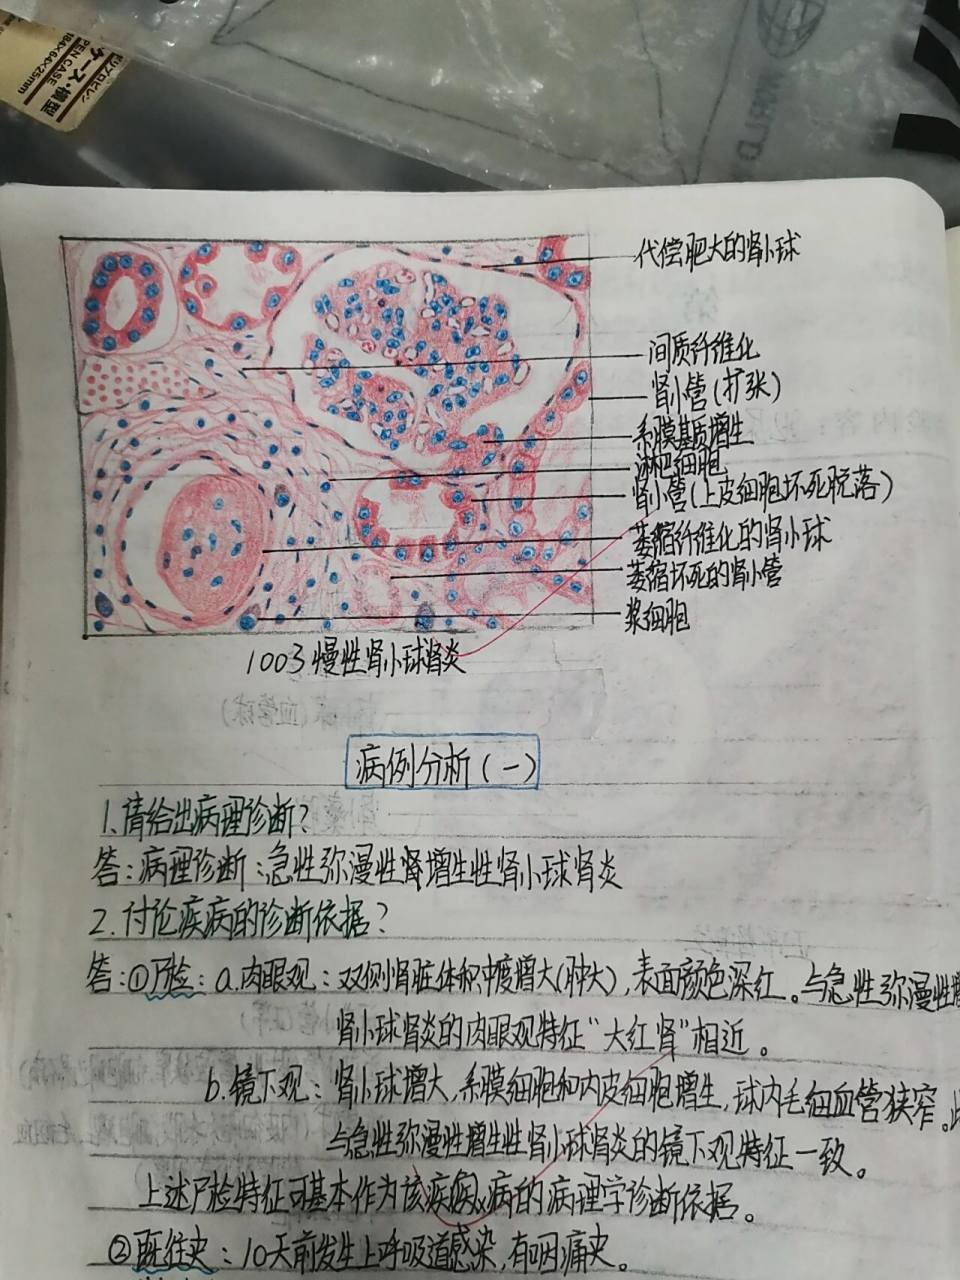 ケース・模型
PEN CASE
184×64×25mm
代偿肥大的肾小球
间质纤维化
肾小管(扩张)
系膜基质增生
淋巴细胞
肾小管(上皮细胞坏死脱落)
萎缩纤维化的肾小球
萎缩坏死的肾小管
浆细胞
1003 慢性肾小球肾炎
病例分析(一)
1.请给出病理诊断?
答:病理诊断:急性弥漫性肾增生性肾小球肾炎
2.讨论疾病的诊断依据?
答:①尸检:a.肉眼观:双侧肾脏体积中度增大(肿大),表面颜色深红。与急性弥漫性增
肾小球肾炎的肉眼观特征"大红肾"相近。
b.镜下观:肾小球增大,系膜细胞和内皮细胞增生,球内毛细血管狭窄。此
与急性弥漫性增生性肾小球肾炎的镜下观特征一致。
上述尸检特征可基本作为该疾病的病理学诊断依据。
②既往史:10天前发生上呼吸道感染,有咽痛史。